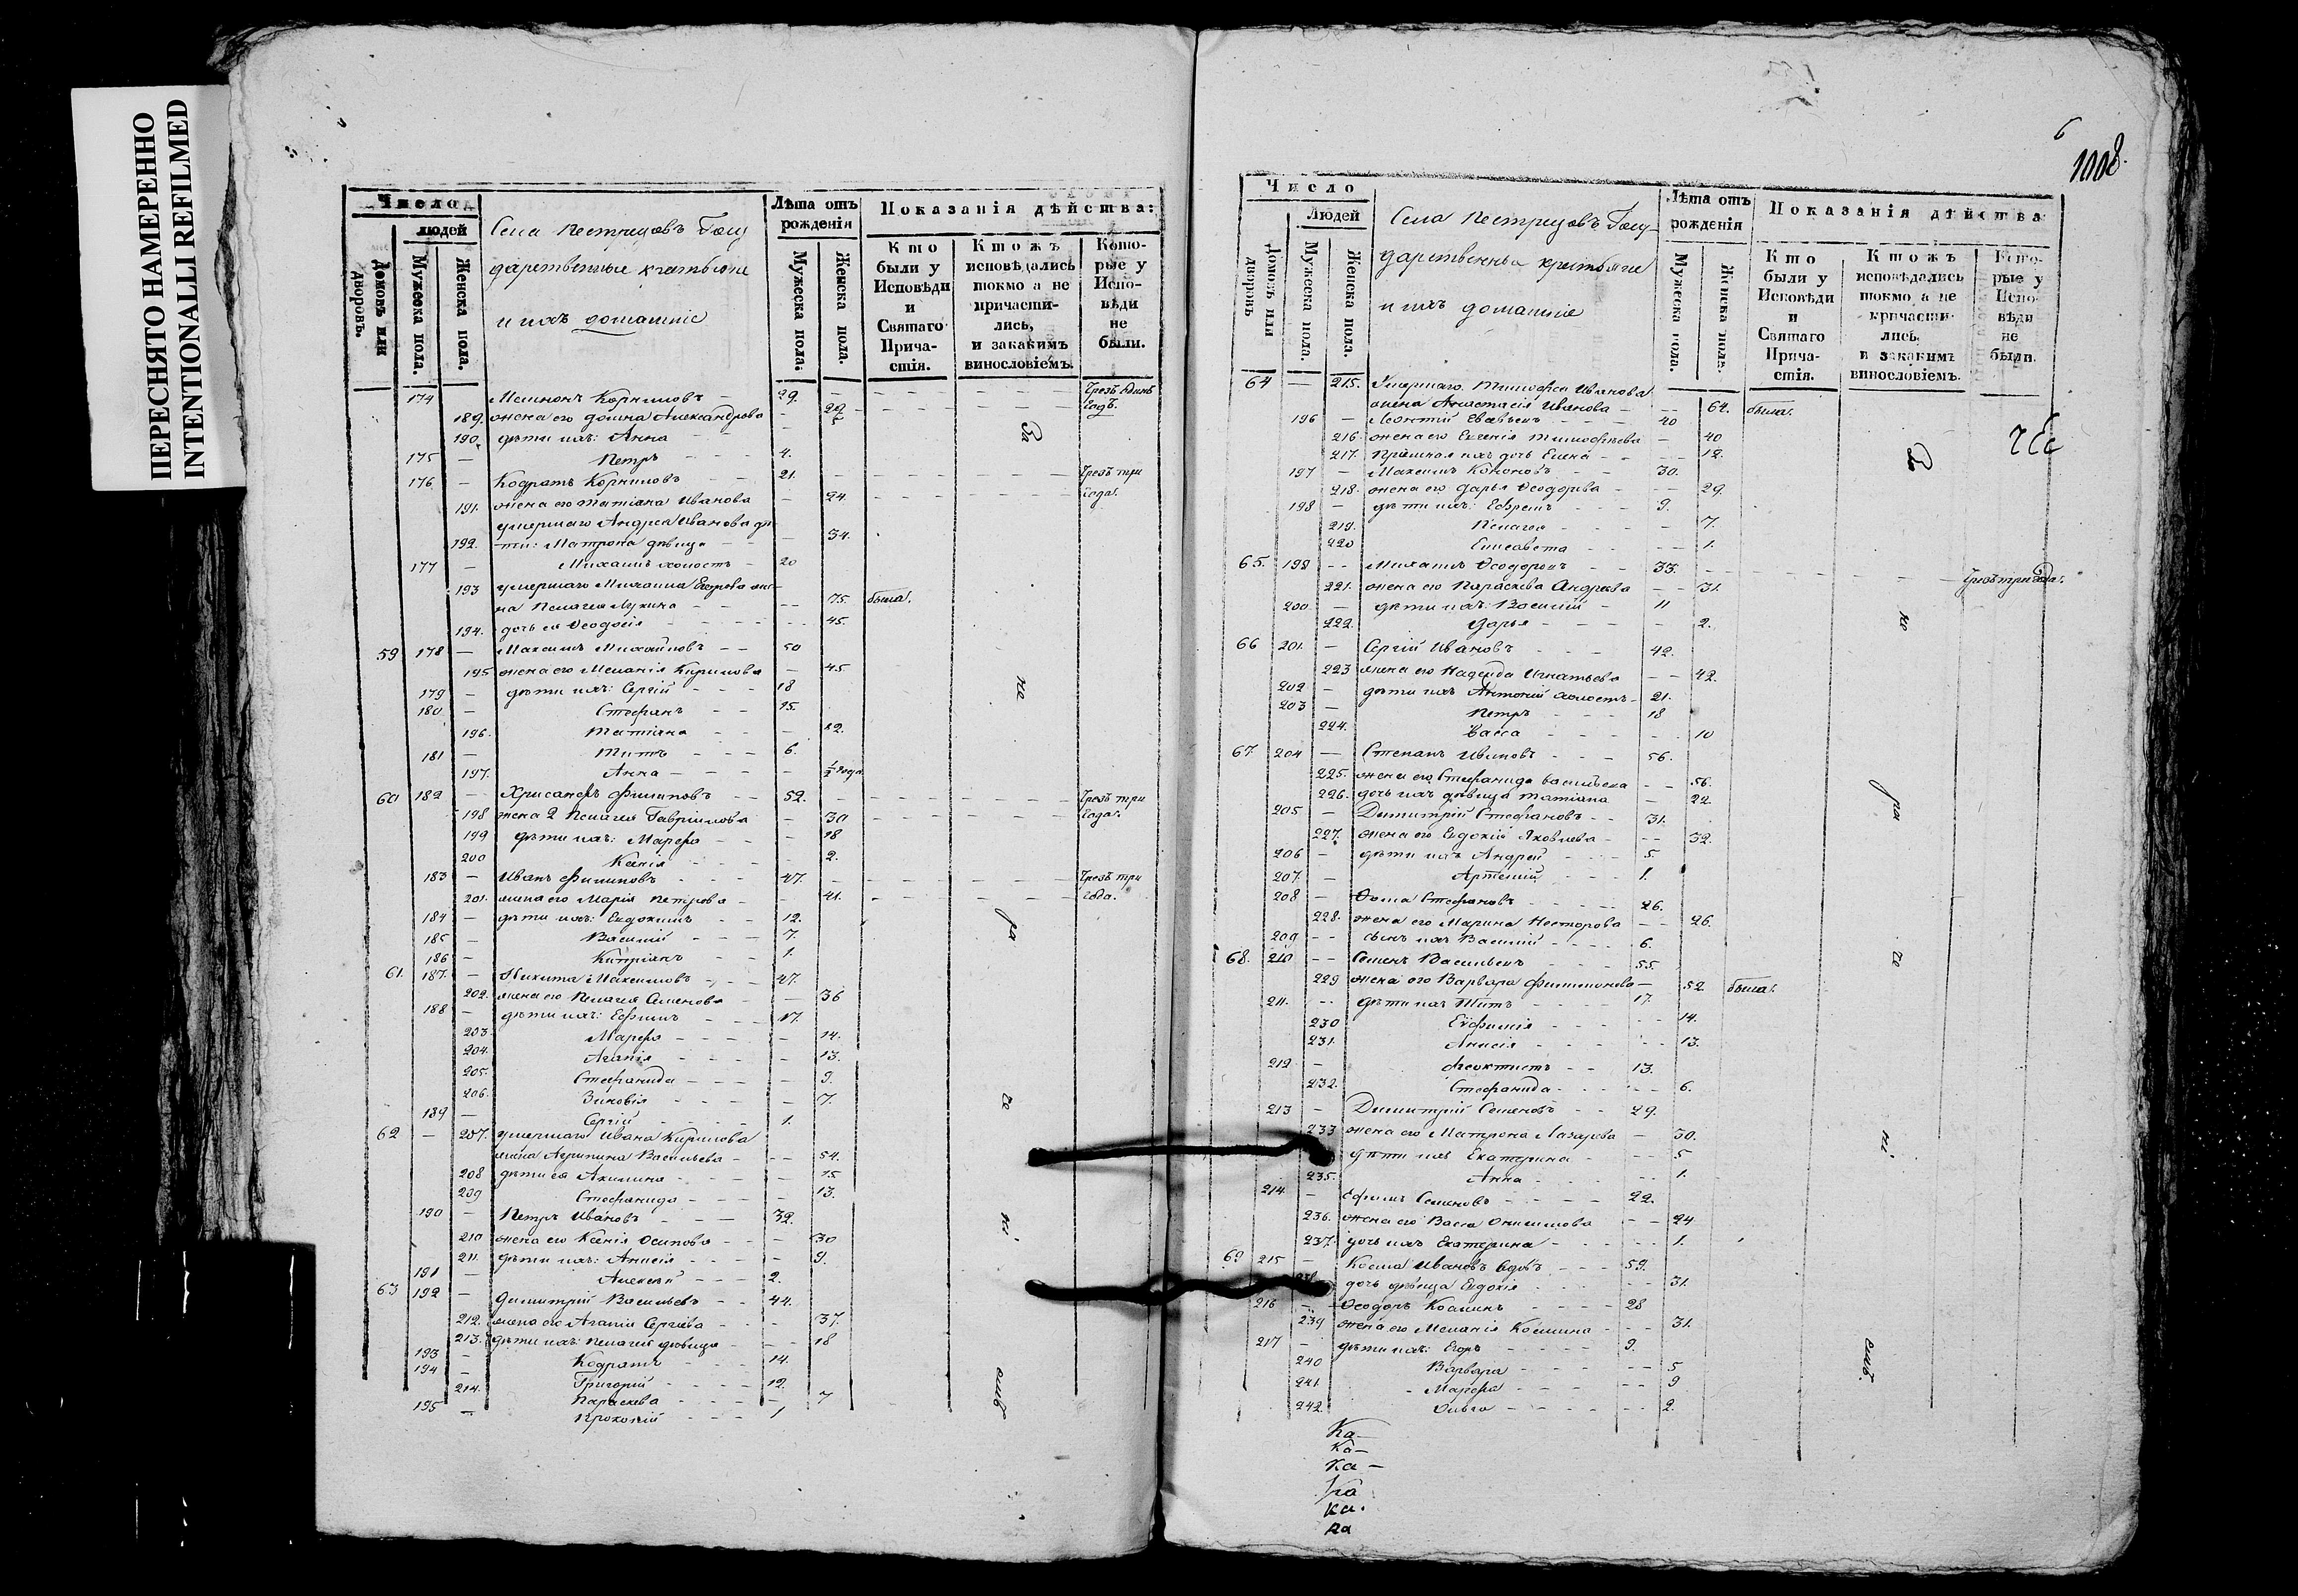 ПЕРЕСНЯТО НАМЕРЕННО
INTENTIONALLI REFILMED
Число
людей
Домовъ или дворовъ.
Мужеска пола.
Женска пола.
Села Пестрецовъ Госу
дарственные крестьяне
и ихъ домашніе
Лѣта отъ рожденія
Мужеска пола.
Женска пола.
Показанія дѣйства:
Кто были у Исповѣди и Святаго Причастія.
Ктожъ исповѣдались токмо а не причастились, и закакимъ винословіемъ.
Которые у Исповѣди не были.
174 — Корниловъ — 29. Чрезъ одинъ
189. жена его Домна Александрова — 29 годъ.
190. дѣти ихъ: Анна
175 — Петръ 4.
176 — Кодратъ Корниловъ 21. Чрезъ три
191. жена его Татіана Иванова — 24. года.
умершаго Андрея Иванова дѣ-
192. ти: Матрона дѣвица — 34.
177 — Михаилъ холостъ — 20
193 умершаго Михаила Егорова же-
на Пелагея Лукина — 75. была.
194. дочь ея Ѳеодосія — 45.
59 178 — Максимъ Михайловъ — 50
195 жена его Меланія Кирилова — 45
179 — дѣти ихъ: Сергій 18
180 — Стефанъ 15.
196. Татіана — 12.
181 — Титъ 6.
197. Анна — ½ года
60 182 — Хрисанѳъ Филиповъ 52. Чрезъ три
198 жена 2 Пелагея Гавриилова — 30 года.
199 дѣти ихъ: Марѳа — 18
200 Ксенія — 2.
183 — Иванъ Филиповъ 47. Чрезъ три
201. жена его Марія Петрова — 41. года.
184 — дѣти ихъ: Евдокимъ 12.
185 — Василій 7.
186 — Кипріанъ 1.
61. 187. — Никита Максимовъ 47.
202. жена его Пелагея Семенова — 36
188 — дѣти ихъ: Ефимъ 17.
203. Марѳа — 14.
204. Агапія — 13.
205. Стефанида — 9.
206. Зиновія — 7.
189 — Сергій 1.
62 — 207. умершаго Ивана Кирилова
жена Агрипина Васильева — 54.
208 дѣти ея Акилина — 15
209 Стефанида — 13.
190 — Петръ Ивановъ — 32.
210 жена его Ксенія Осипова — 30
211. дѣти ихъ: Анисія — 9.
191 — Алексѣй 2.
63 192 — Димитрій Васильевъ 44.
212. жена его Агапія Сергіева — 37.
213. дѣти ихъ: Пелагея дѣвица — 18
193 — Кодратъ 14.
194 — Григорій 12.
214. Параскева — 7
195 — Прокопій 1
За
не
ра
че
ні
емъ
6
1008.
Число
Людей
Домовъ или дворовъ
Мужеска пола.
Женска пола.
Села Пестрецовъ Госу-
дарственны крестьяне
и ихъ домашніе
Лѣта отъ рожденія
Мужеска пола.
Женска пола.
Показанія дѣйства
Кто были у Исповѣди и Святаго Причастія.
Ктожъ исповѣдались токмо а не причастились, и закакимъ винословіемъ.
Которые у Исповѣди не были.
64 — 215. Умершаго Тимоѳея Иванова
жена Анастасія Иванова — 64. была.
196 — Леонтій 40
216. жена его Евгенія Тимоѳеева — 40
217. дочь Елена — 12.
197 — Максимъ Кононовъ 30.
218. жена его Дарья Ѳеодорова — 29.
198 — дѣти ихъ: Ефремъ 9.
219. Пелагея — 7.
220 Елисавета — 1.
65. 199 — Михаилъ Ѳеодоровъ 33. Чрезъ три года.
221. жена его Параскева Андреева — 31.
200 — дѣти ихъ: Василій 11
222. Дарья — 2.
66 201. — Сергій Ивановъ 42.
223 жена его Надежда Игнатьева — 42.
202 — дѣти ихъ Антоній холостъ 21.
203 — Петръ 18
224. Васса — 10
67. 204 — Степанъ Ивановъ 56.
225. жена его Стефанида Васильева — 56.
226. дочь ихъ дѣвица Татіана — 22
205 — Димитрій Стефановъ 31.
227. жена его Евдокія Яковлева — 32.
206 — дѣти ихъ Андрей 5.
207. — Артемій 1.
208 — Ѳома Стефановъ 26.
228. жена его Марина Несторова — 26.
209 — сынъ ихъ Василій 6.
68. 210 — Семенъ Васильевъ 55.
229 жена его Варвара Филимонова — 52 была.
211. — дѣти ихъ Титъ 17.
230 Евфимія — 14.
231. Анисія — 13.
212 — Феоктистъ 13.
232. Стефанида — 6.
213 — Димитрій Семеновъ 29.
233 жена его Матрона Лазарева — 30.
дѣти ихъ Екатерина — 5
235. Анна — 1.
214. — Ефимъ Семеновъ 22.
236. жена его Васса Онисимова — 24
237. дочь ихъ Екатерина — 1.
69 215 — Косма Ивановъ вдовъ 59.
238. дочь дѣвица Евдокія — 31.
216 — Ѳеодоръ Косминъ 28
239 жена его Меланія Космина — 31.
217 — дѣти ихъ: Егоръ 9.
240 Варвара — 5
241. Марѳа — 9
242. Ольга — 2.
За
не
ра
че
ні
емъ.
Ка —
Ка —
Ка —
Ка
Ка.
Ка